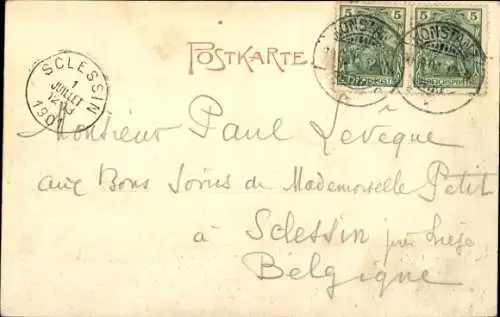 POSTKARTE
5 5 5 5
KONSTANZ
REICHSPOST
SCLESSIN
1
JUILLET
12-13
1901
Monsieur Paul Levêque
aux Bons Soins de Mademoiselle Petit
à Sclessin près Liège
Belgique